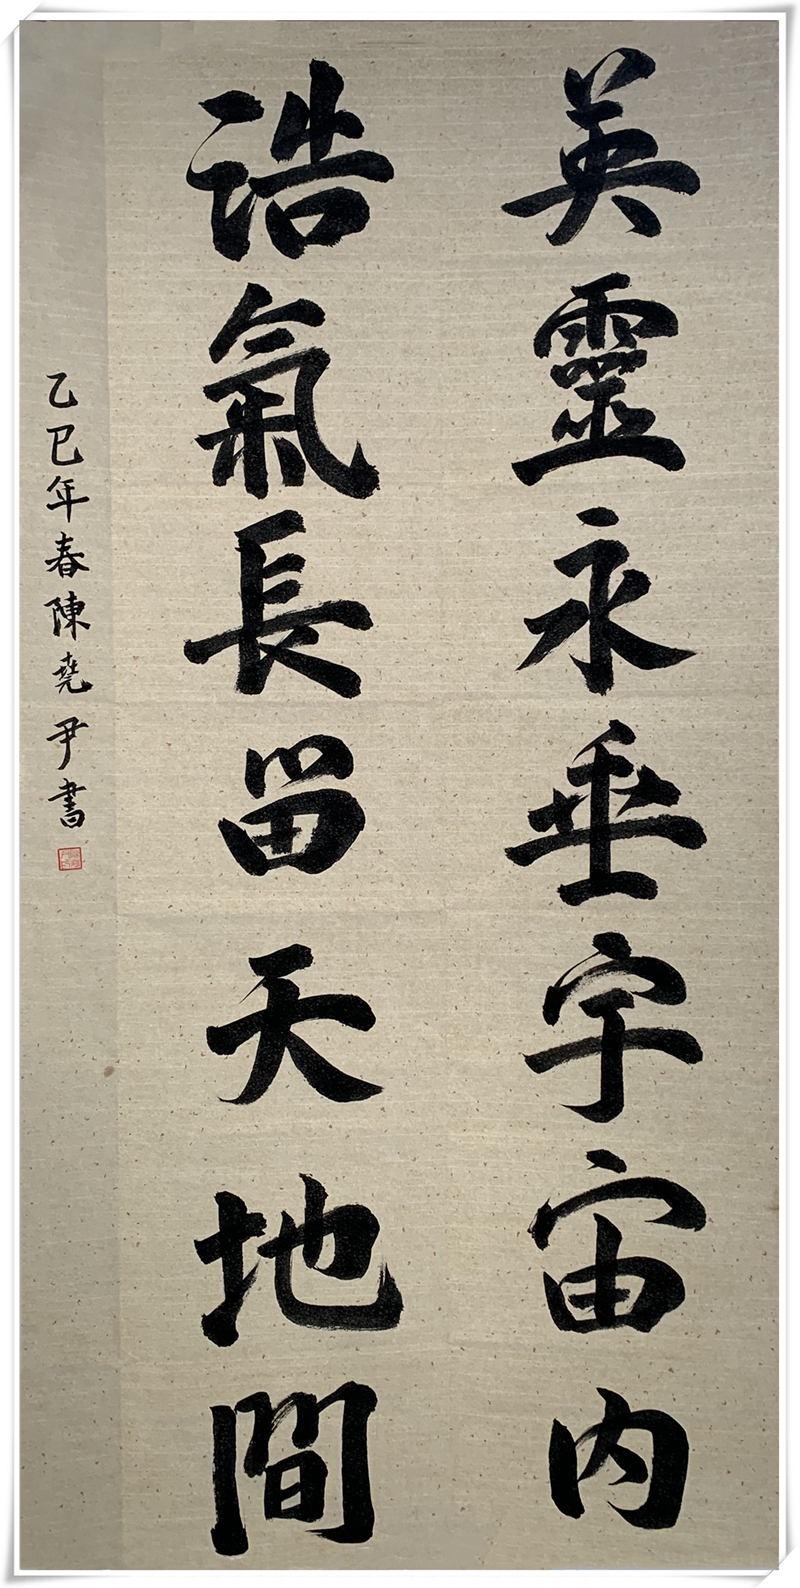 英靈永垂宇宙内
浩氣長留天地間
乙巳年春陳堯尹書